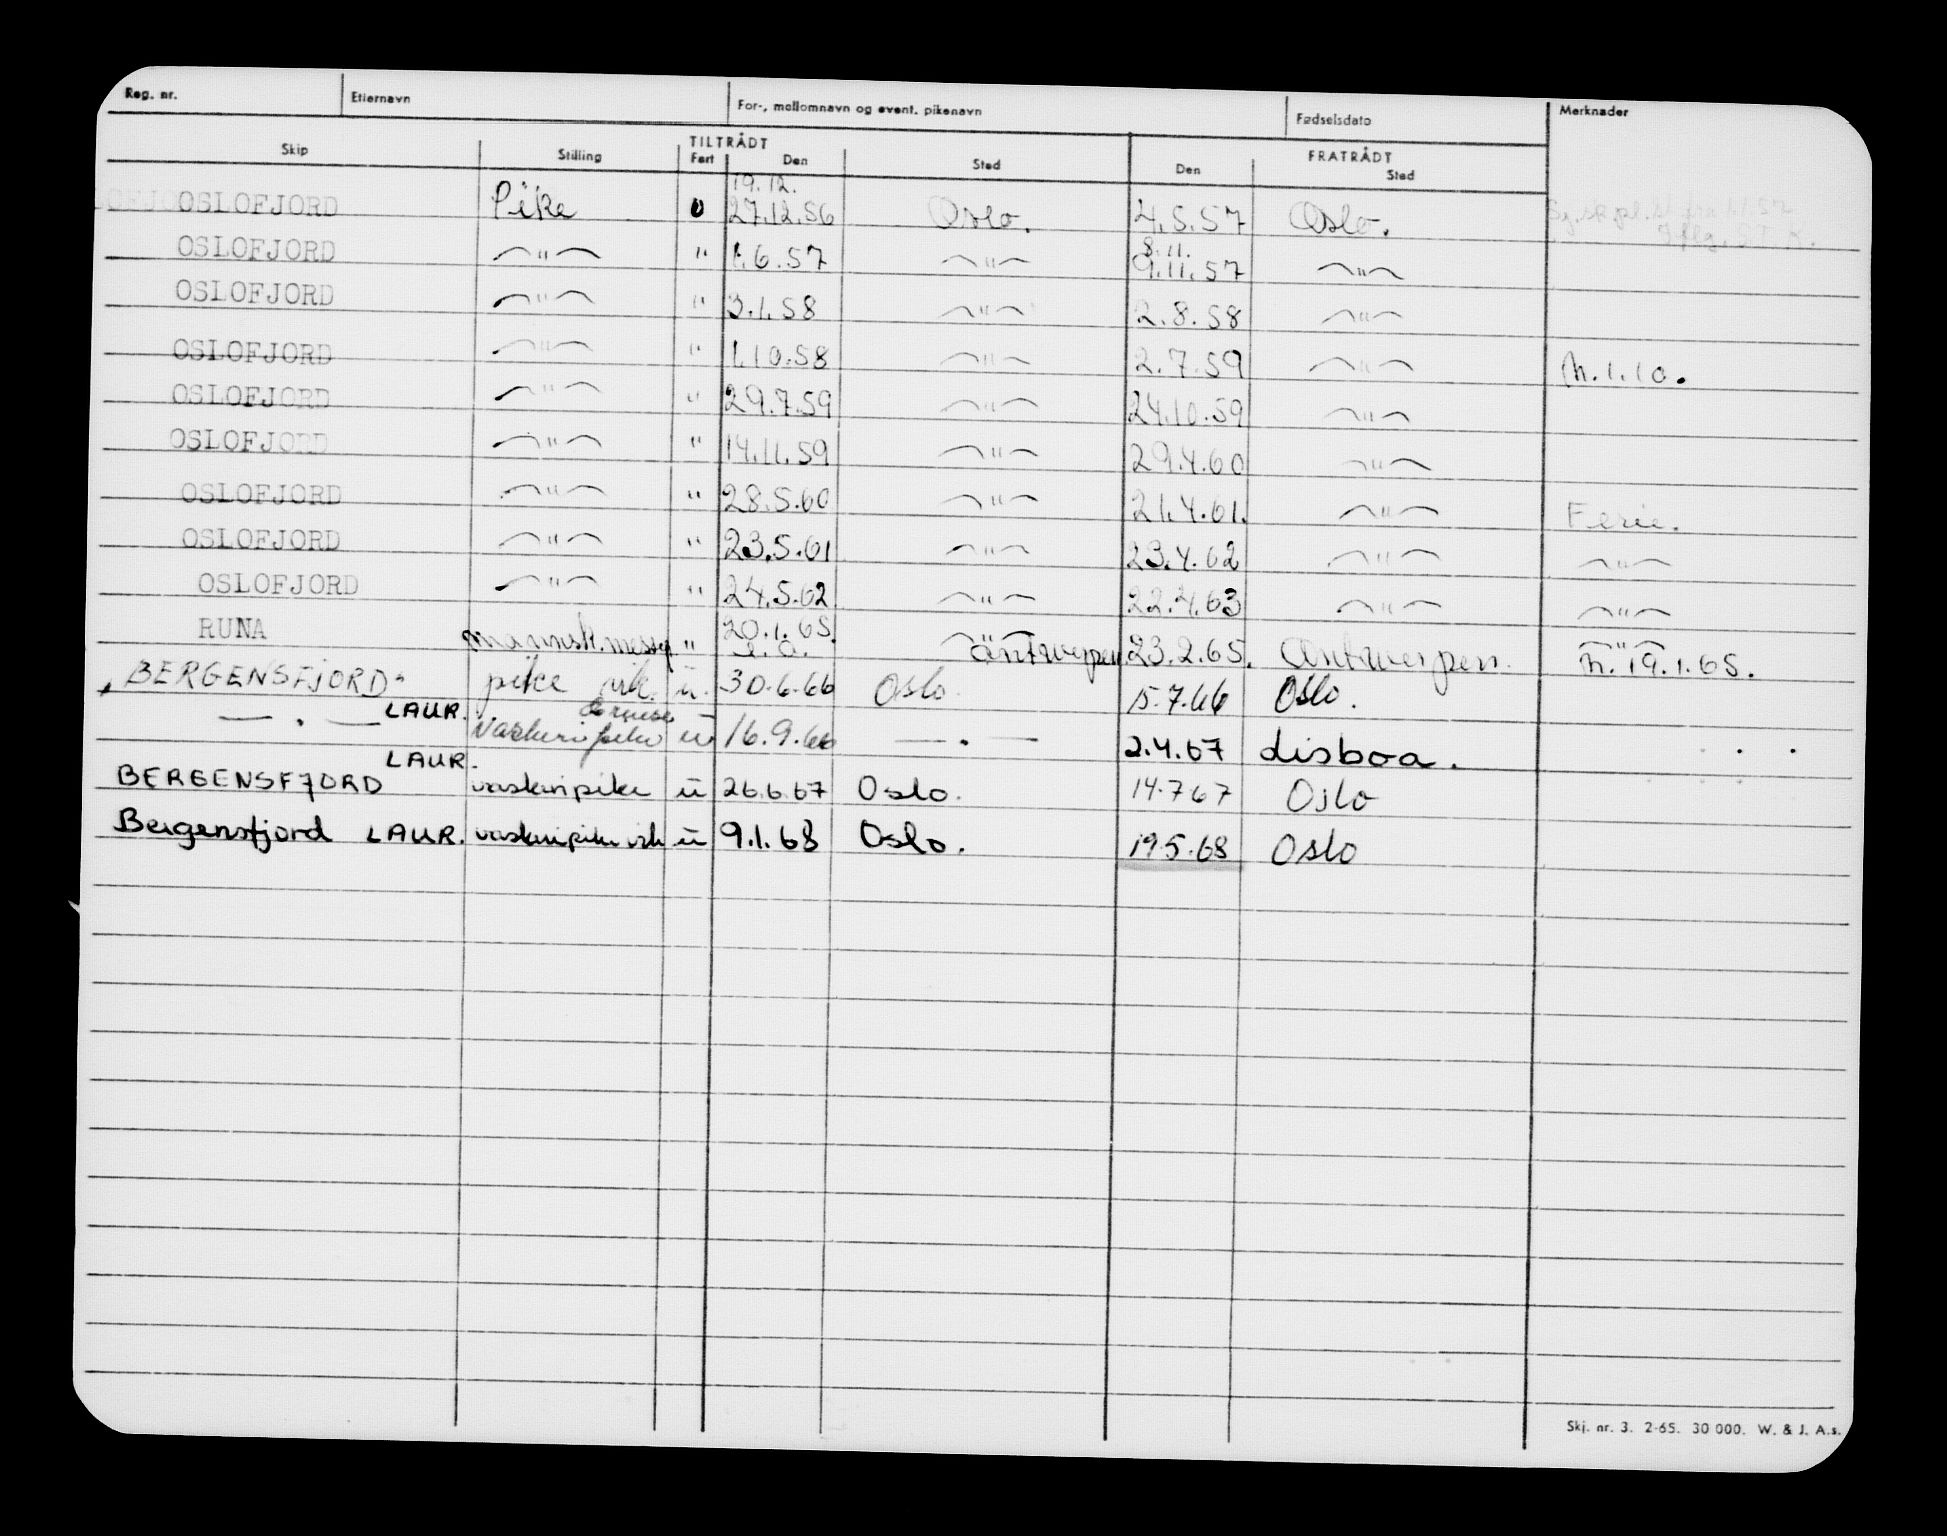 Reg. nr. Etternavn For-, mellomnavn og event. pikenavn Fødselsdato Merknader
TILTRÅDT FRATRÅDT
Skip Stilling Fart Den Sted Den Sted
19.12.
OSLOFJORD Pike u 27.12.56 Oslo. 4.5.57 Oslo.
8.11.
OSLOFJORD —"— " 1.6.57 —"— 9.11.57 —"—
OSLOFJORD —"— " 3.1.58 —"— 2.8.58 —"—
OSLOFJORD —"— " 1.10.58 —"— 2.7.59 —"— M.1.10.
OSLOFJORD —"— " 29.7.59 —"— 24.10.59 —"—
OSLOFJORD —"— " 14.11.59 —"— 29.4.60 —"—
OSLOFJORD —"— " 28.5.60 —"— 21.4.61. —"— Ferie.
OSLOFJORD —"— " 23.5.61 —"— 23.4.62 —"— —"—
OSLOFJORD —"— " 24.5.62 —"— 22.4.63 —"— —"—
RUNA mannsk.messep. " 20.1.65. —"— Antwerpen 23.2.65. Antwerpen. —"— M.19.1.65.
"BERGENSFJORD" pike vik. u. 30.6.66 Oslo. 15.7.66 Oslo.
— . — LAUR. cruise
vaskeripike u 16.9.66 — . — 2.4.67 Lisboa.
LAUR.
BERGENSFJORD vaskeripike u 26.6.67 Oslo. 14.7.67 Oslo
Bergensfjord LAUR. vaskeripike vik u 9.1.68 Oslo. 19.5.68 Oslo
Skj. nr. 3. 2-65. 30 000. W. & J. A.s.